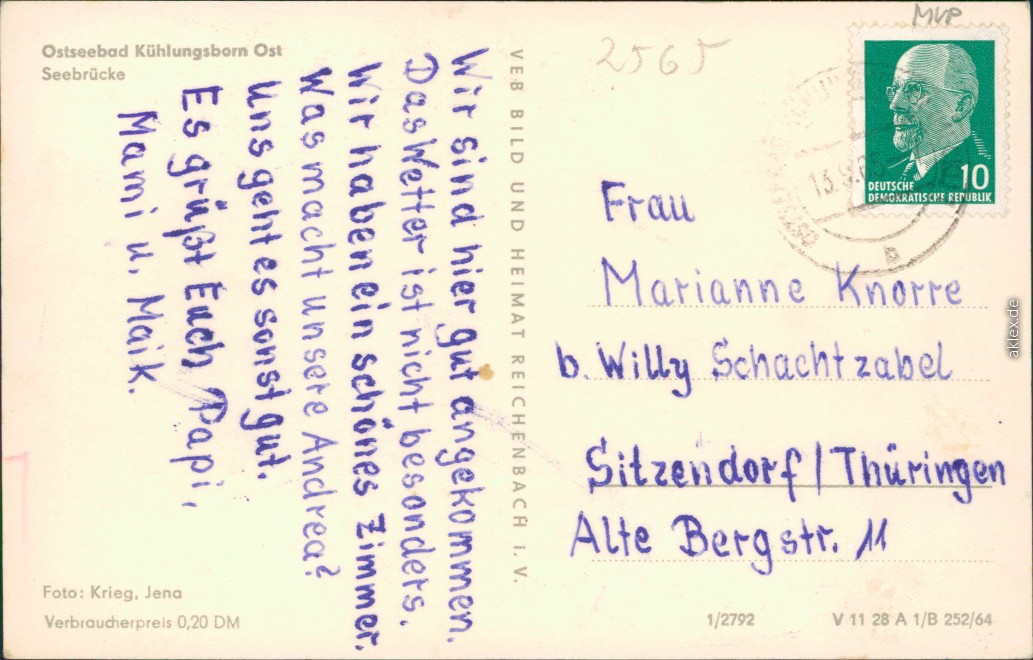 Ostseebad Kühlungsborn Ost
Seebrücke
Wir sind hier gut angekommen.
Das Wetter ist nicht besonders.
Wir haben ein schönes Zimmer.
Was macht unsere Andrea?
Uns geht es sonst gut.
Es grüßt Euch, Papi,
Mami u. Maik.
Foto: Krieg, Jena
Verbraucherpreis 0,20 DM
VEB BILD UND HEIMAT REICHENBACH i. V.
2565
MVP
10
DEUTSCHE
DEMOKRATISCHE REPUBLIK
b
Frau
Marianne Knorre
b. Willy Schachtzabel
Sitzendorf/Thüringen
Alte Bergstr. 11
1/2792
V 11 28 A 1/B 252/64
aklex.de